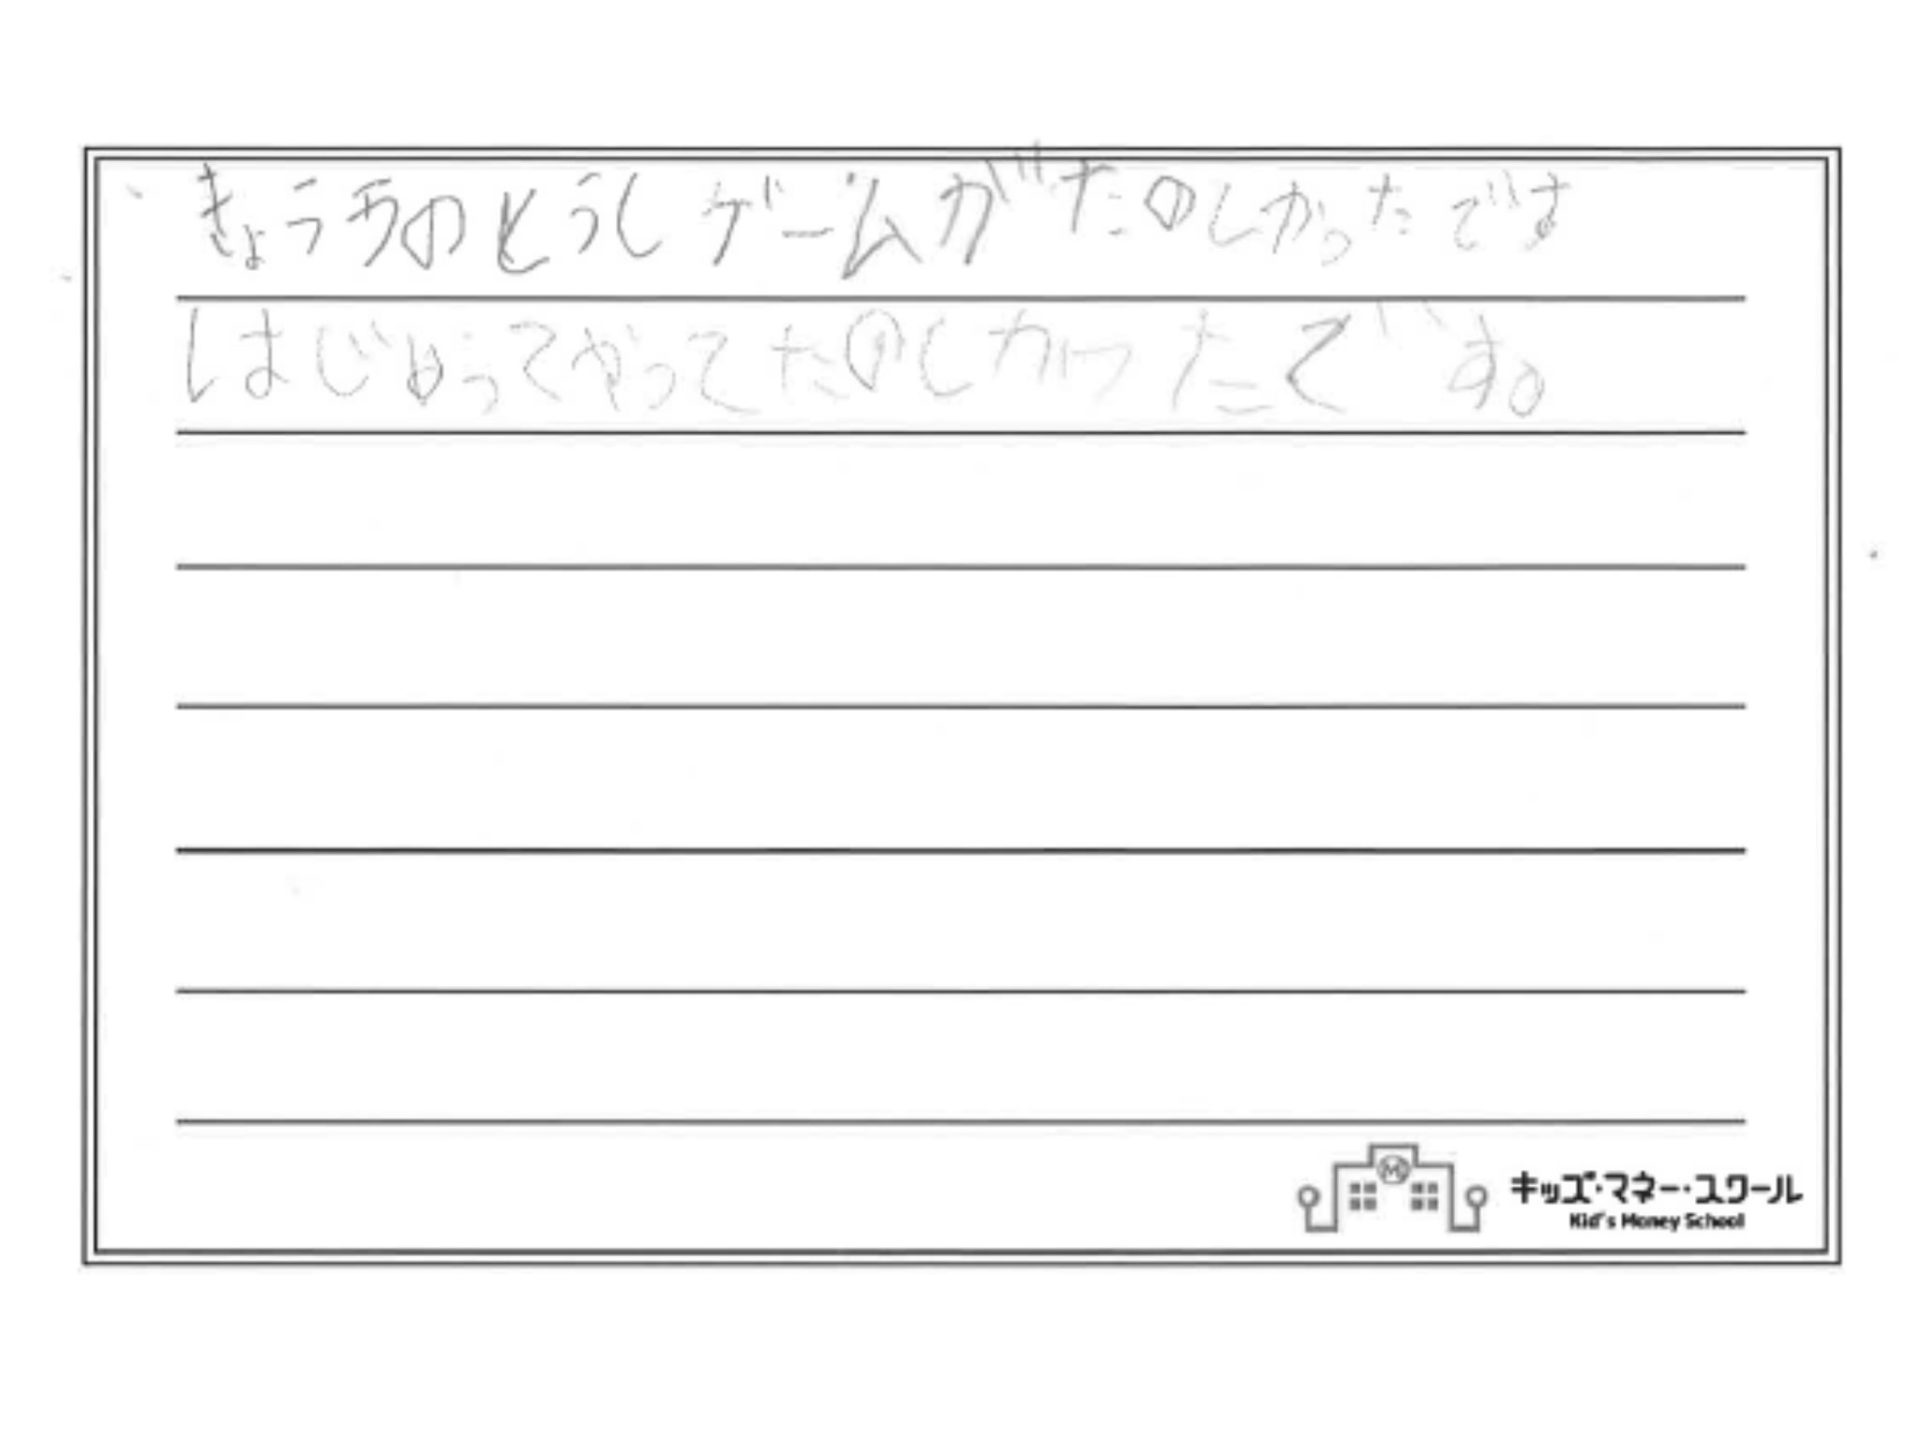 きょうラのとうしゲームがたのしかったです
はじめってやってたのしかったです。
キッズ・マネー・スクール
Kid's Money School